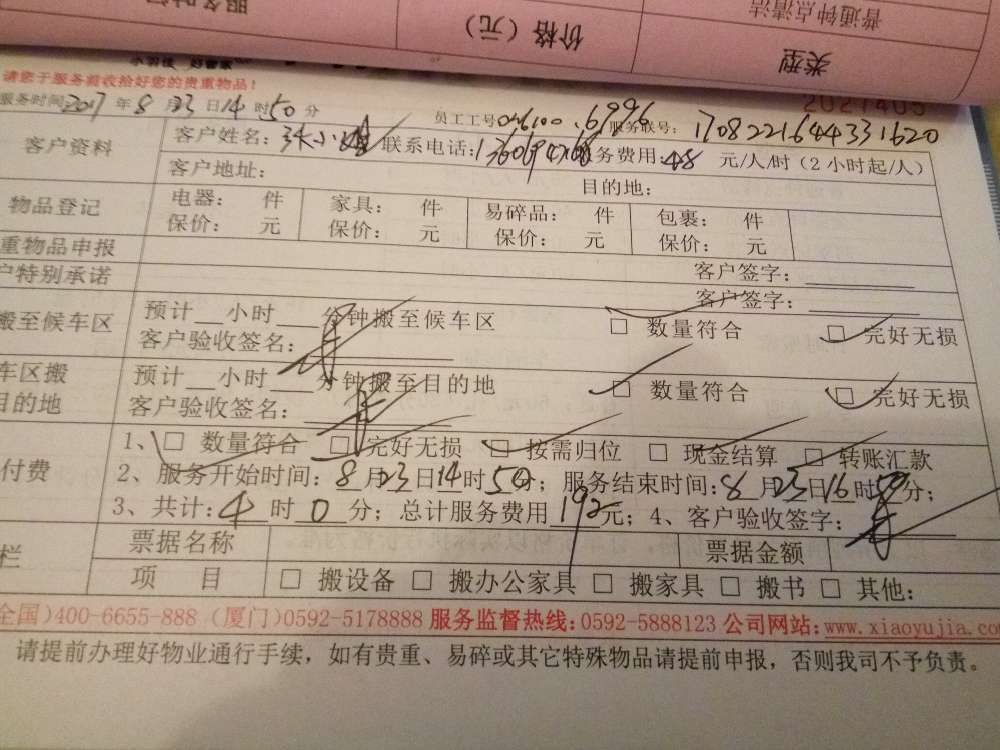 服务时间
价格(元)
普通钟点清洁
类型
请您于服务前收拾好您的贵重物品!
2021405
服务时间:2017年8月23日14时50分
员工工号 服务联号: 1708221644331620
客户资料 客户姓名: 联系电话: 务费用:48 元/人/时(2小时起/人)
客户地址: 目的地:
物品登记 电器: 件 家具: 件 易碎品: 件 包裹: 件
保价: 元 保价: 元 保价: 元 保价: 元
重物品申报 客户签字:
户特别承诺 客户签字:
搬至候车区 预计__小时___分钟搬至候车区 □ 数量符合 □ 完好无损
客户验收签名:
车区搬 预计__小时___分钟搬至目的地 □ 数量符合 □ 完好无损
目的地 客户验收签名:
付费 1、□ 数量符合 □ 完好无损 □ 按需归位 □ 现金结算 □ 转账汇款
2、服务开始时间:8月23日14时50分;服务结束时间:8月23日16时50分;
3、共计:4时0分;总计服务费用192元;4、客户验收签字:
栏 票据名称 票据金额
项 目 □ 搬设备 □ 搬办公家具 □ 搬家具 □ 搬书 □ 其他:
全国)400-6655-888 (厦门)0592-5178888 服务监督热线:0592-5888123 公司网站:www.xiaoyujia.co
请提前办理好物业通行手续,如有贵重、易碎或其它特殊物品请提前申报,否则我司不予负责。